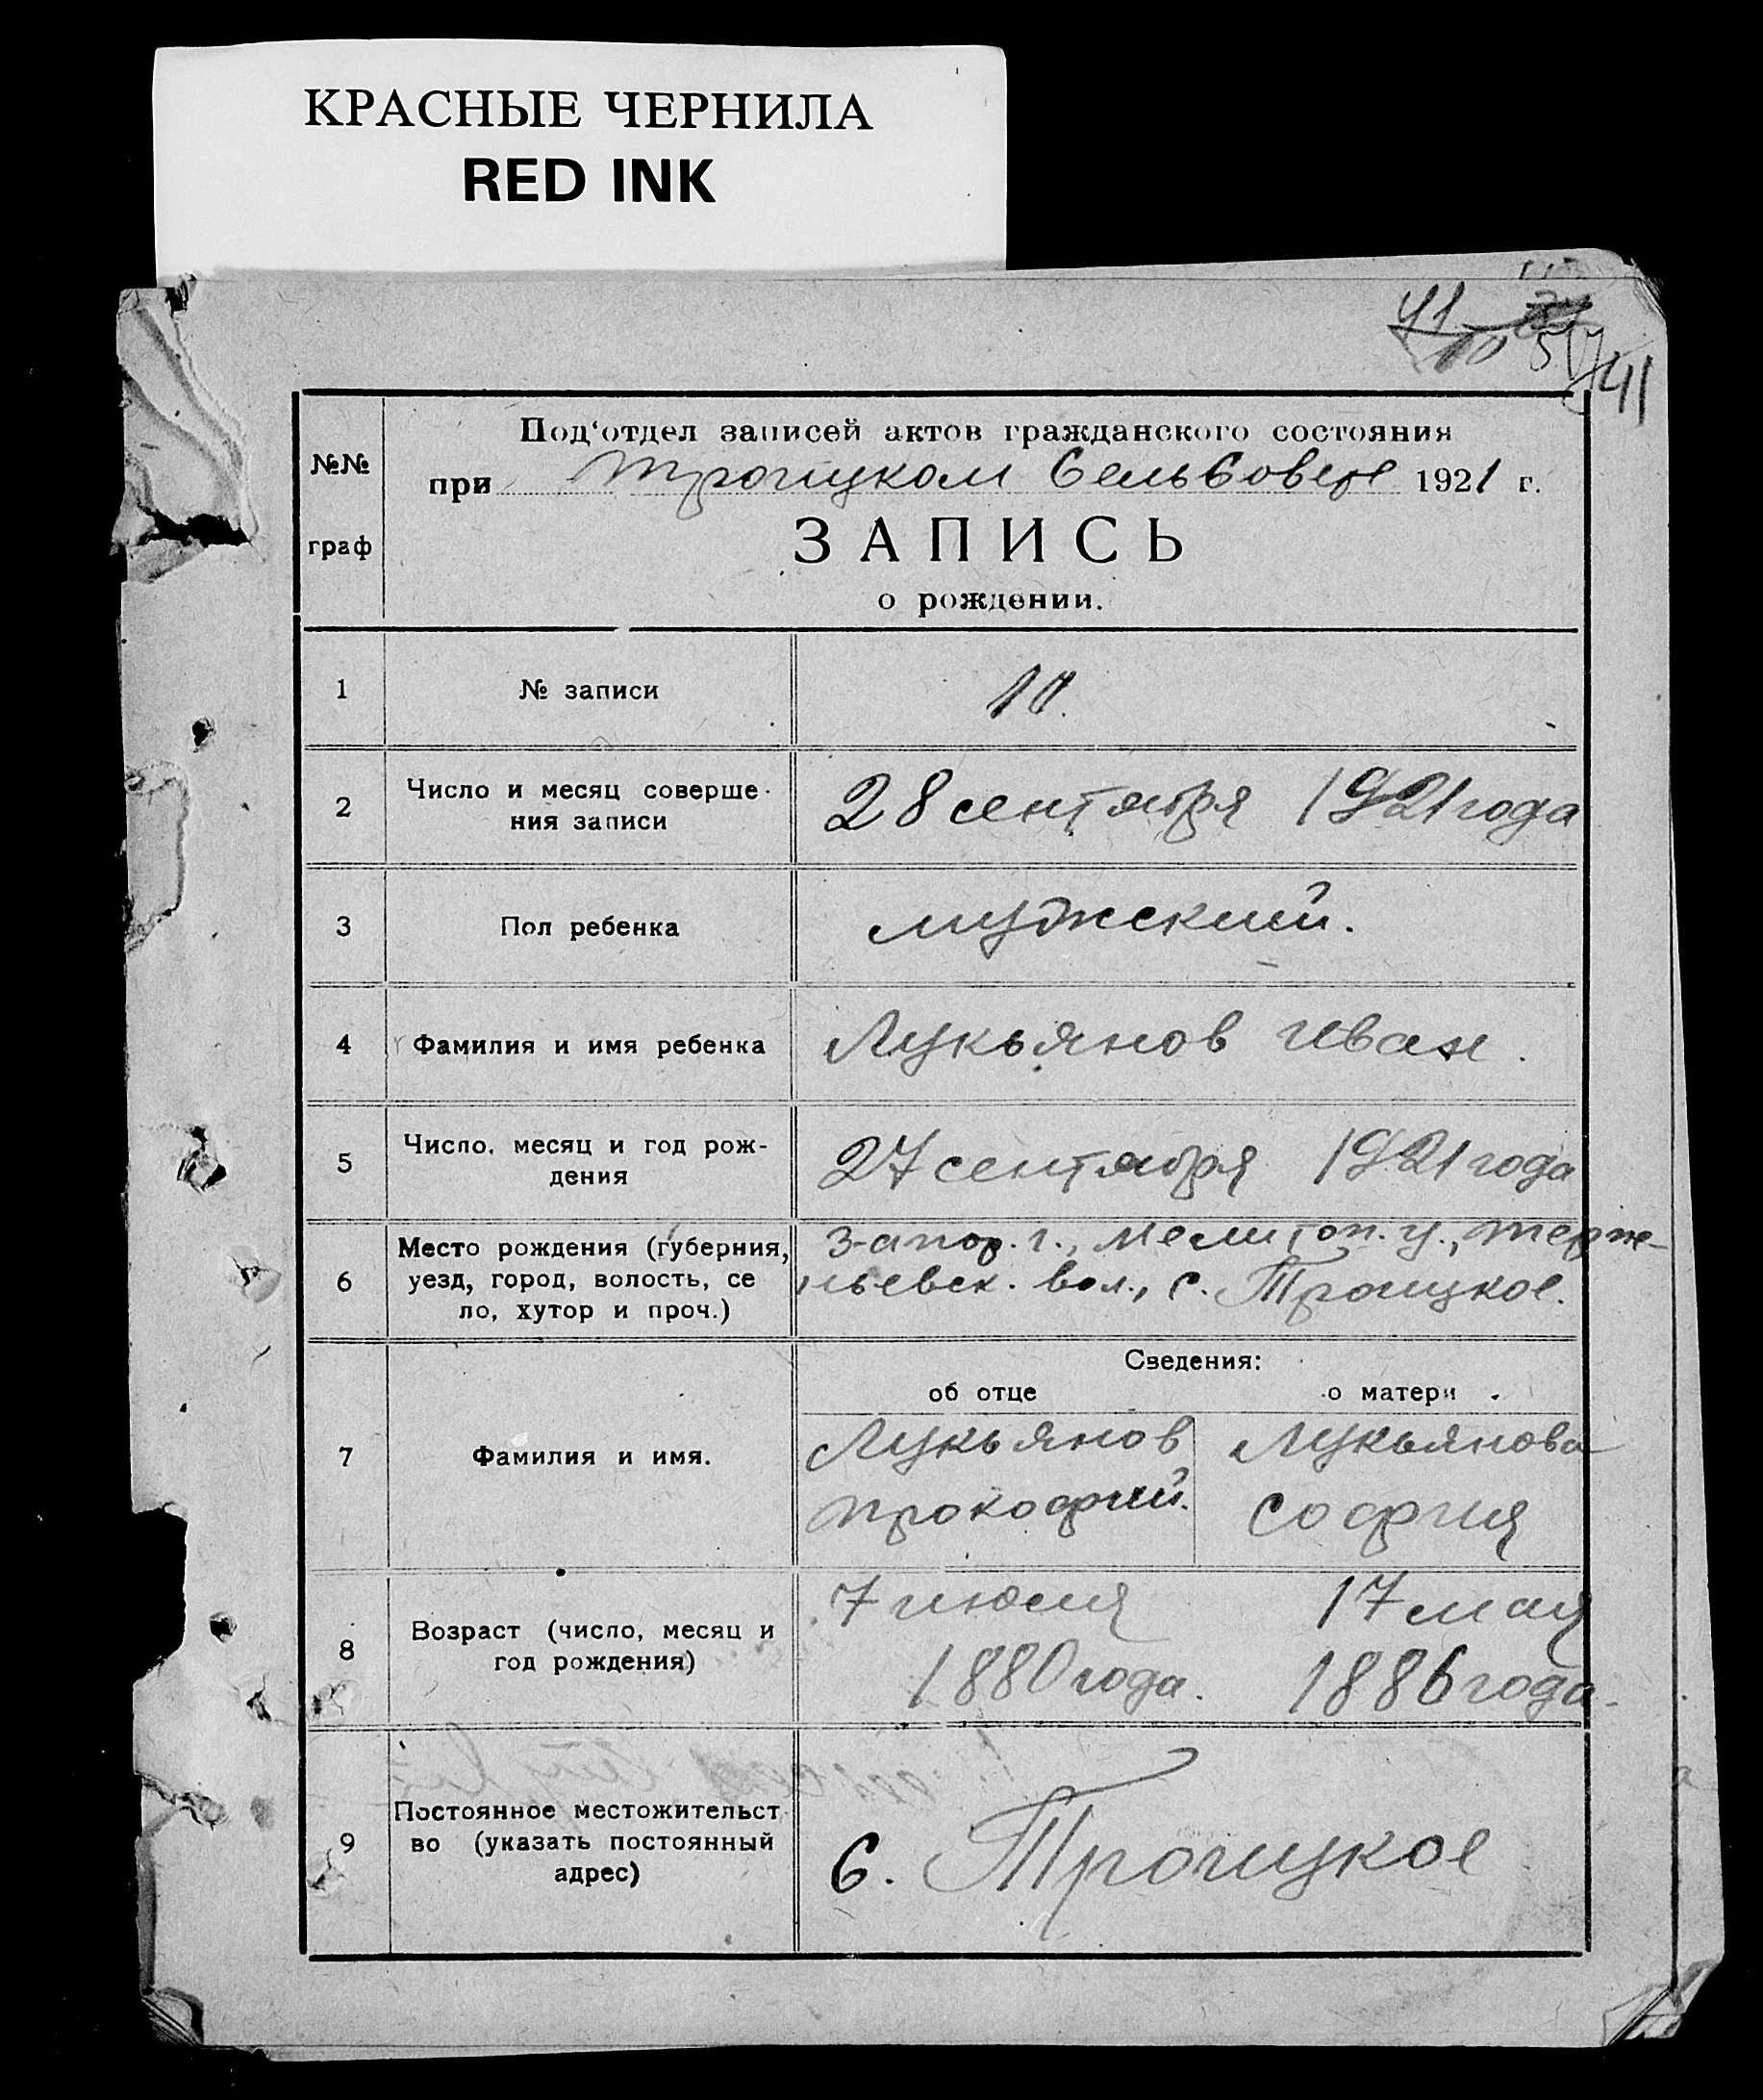 КРАСНЫЕ ЧЕРНИЛА
RED INK
41
10
57
41
№№ граф
Под‘отдел записей актов гражданского состояния
при Троицком Сельсовете 1921 г.
ЗАПИСЬ
о рождении.
1 № записи 10.
2 Число и месяц соверше-
ния записи
28 сентября 1921 года
3 Пол ребенка мужский.
4 Фамилия и имя ребенка Лукьянов Иван.
5 Число, месяц и год рож-
дения
27 сентября 1921 года
6 Место рождения (губерния,
уезд, город, волость, се
ло, хутор и проч.)
Запор. г., Мелитоп. у., Терпе-
ньевск. вол., с. Троицкое.
Сведения:
об отце о матери
7 Фамилия и имя.
Лукьянов Лукьянова
Прокофий. София
8 Возраст (число, месяц и
год рождения)
7 июля 17 мая
1880 года. 1886 года.
9 Постоянное местожительст
во (указать постоянный
адрес)
С. Троицкое